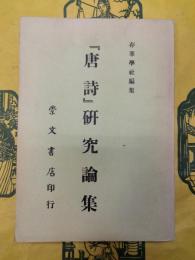 存萃學社編集
『唐詩』研究論集
崇文書店印行